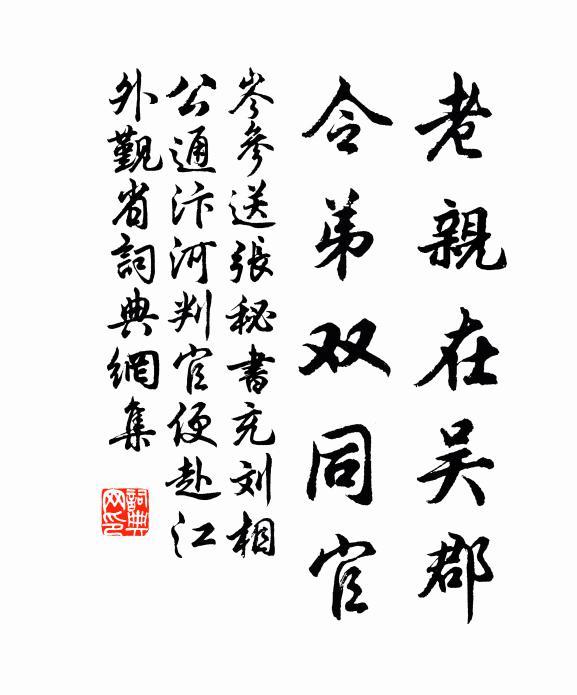 老親在吴郡
令弟双同官
岑參送張秘書充刘相
公通汴河判官便赴江
外覲省詞典網集
詞典
网印